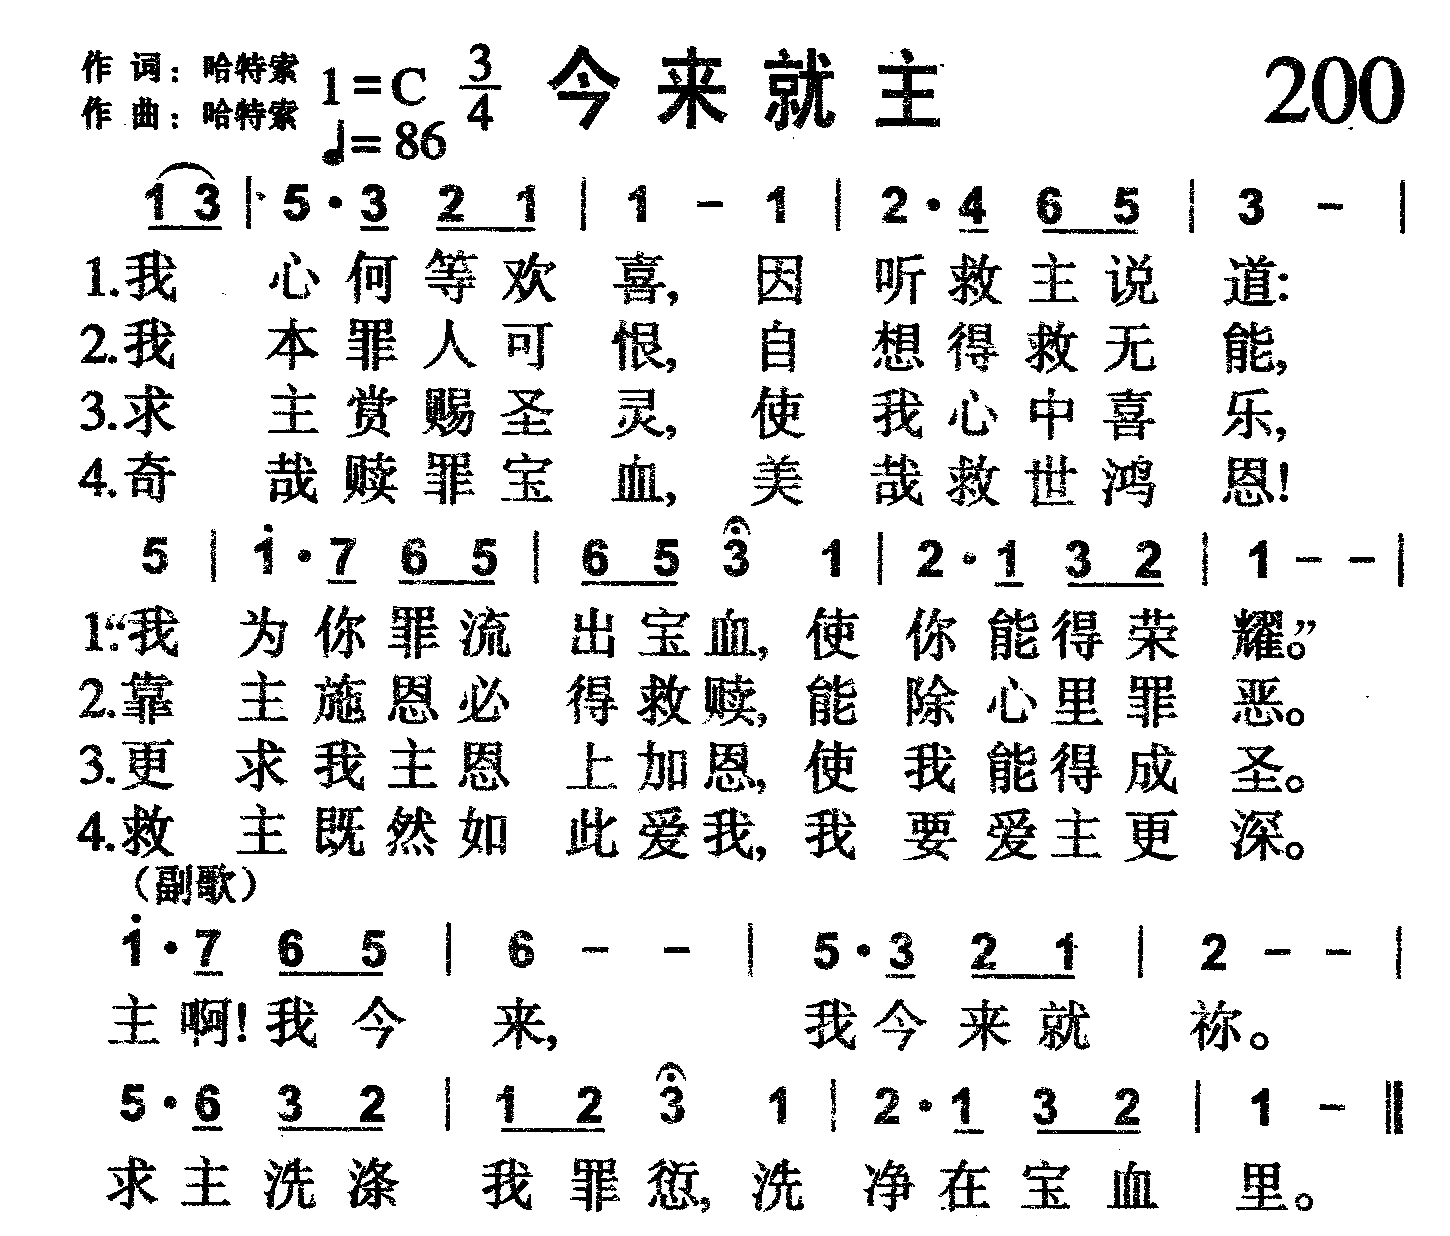 作 词：哈特索 1=C 3/4 今来就主 200
作 曲：哈特索 ♩=86
1 3 | 5·3 2 1 | 1 - 1 | 2·4 6 5 | 3 - |
1.我 心何等欢 喜, 因 听救主说 道:
2.我 本罪人可 恨, 自 想得救无 能,
3.求 主赏赐圣 灵, 使 我心中喜 乐,
4.奇 哉赎罪宝 血, 美 哉救世鸿 恩!
5 | 1·7 6 5 | 6 5 3 1 | 2·1 3 2 | 1 - - |
1.“我 为你罪流 出宝血, 使 你能得荣 耀。”
2.靠 主施恩必 得救赎, 能 除心里罪 恶。
3.更 求我主恩 上加恩, 使 我能得成 圣。
4.救 主既然如 此爱我, 我 要爱主更 深。
（副歌）
1·7 6 5 | 6 - - | 5·3 2 1 | 2 - - |
主啊! 我今 来, 我今来就 祢。
5·6 3 2 | 1 2 3 1 | 2·1 3 2 | 1 - ‖
求主洗涤 我罪愆, 洗 净在宝血 里。